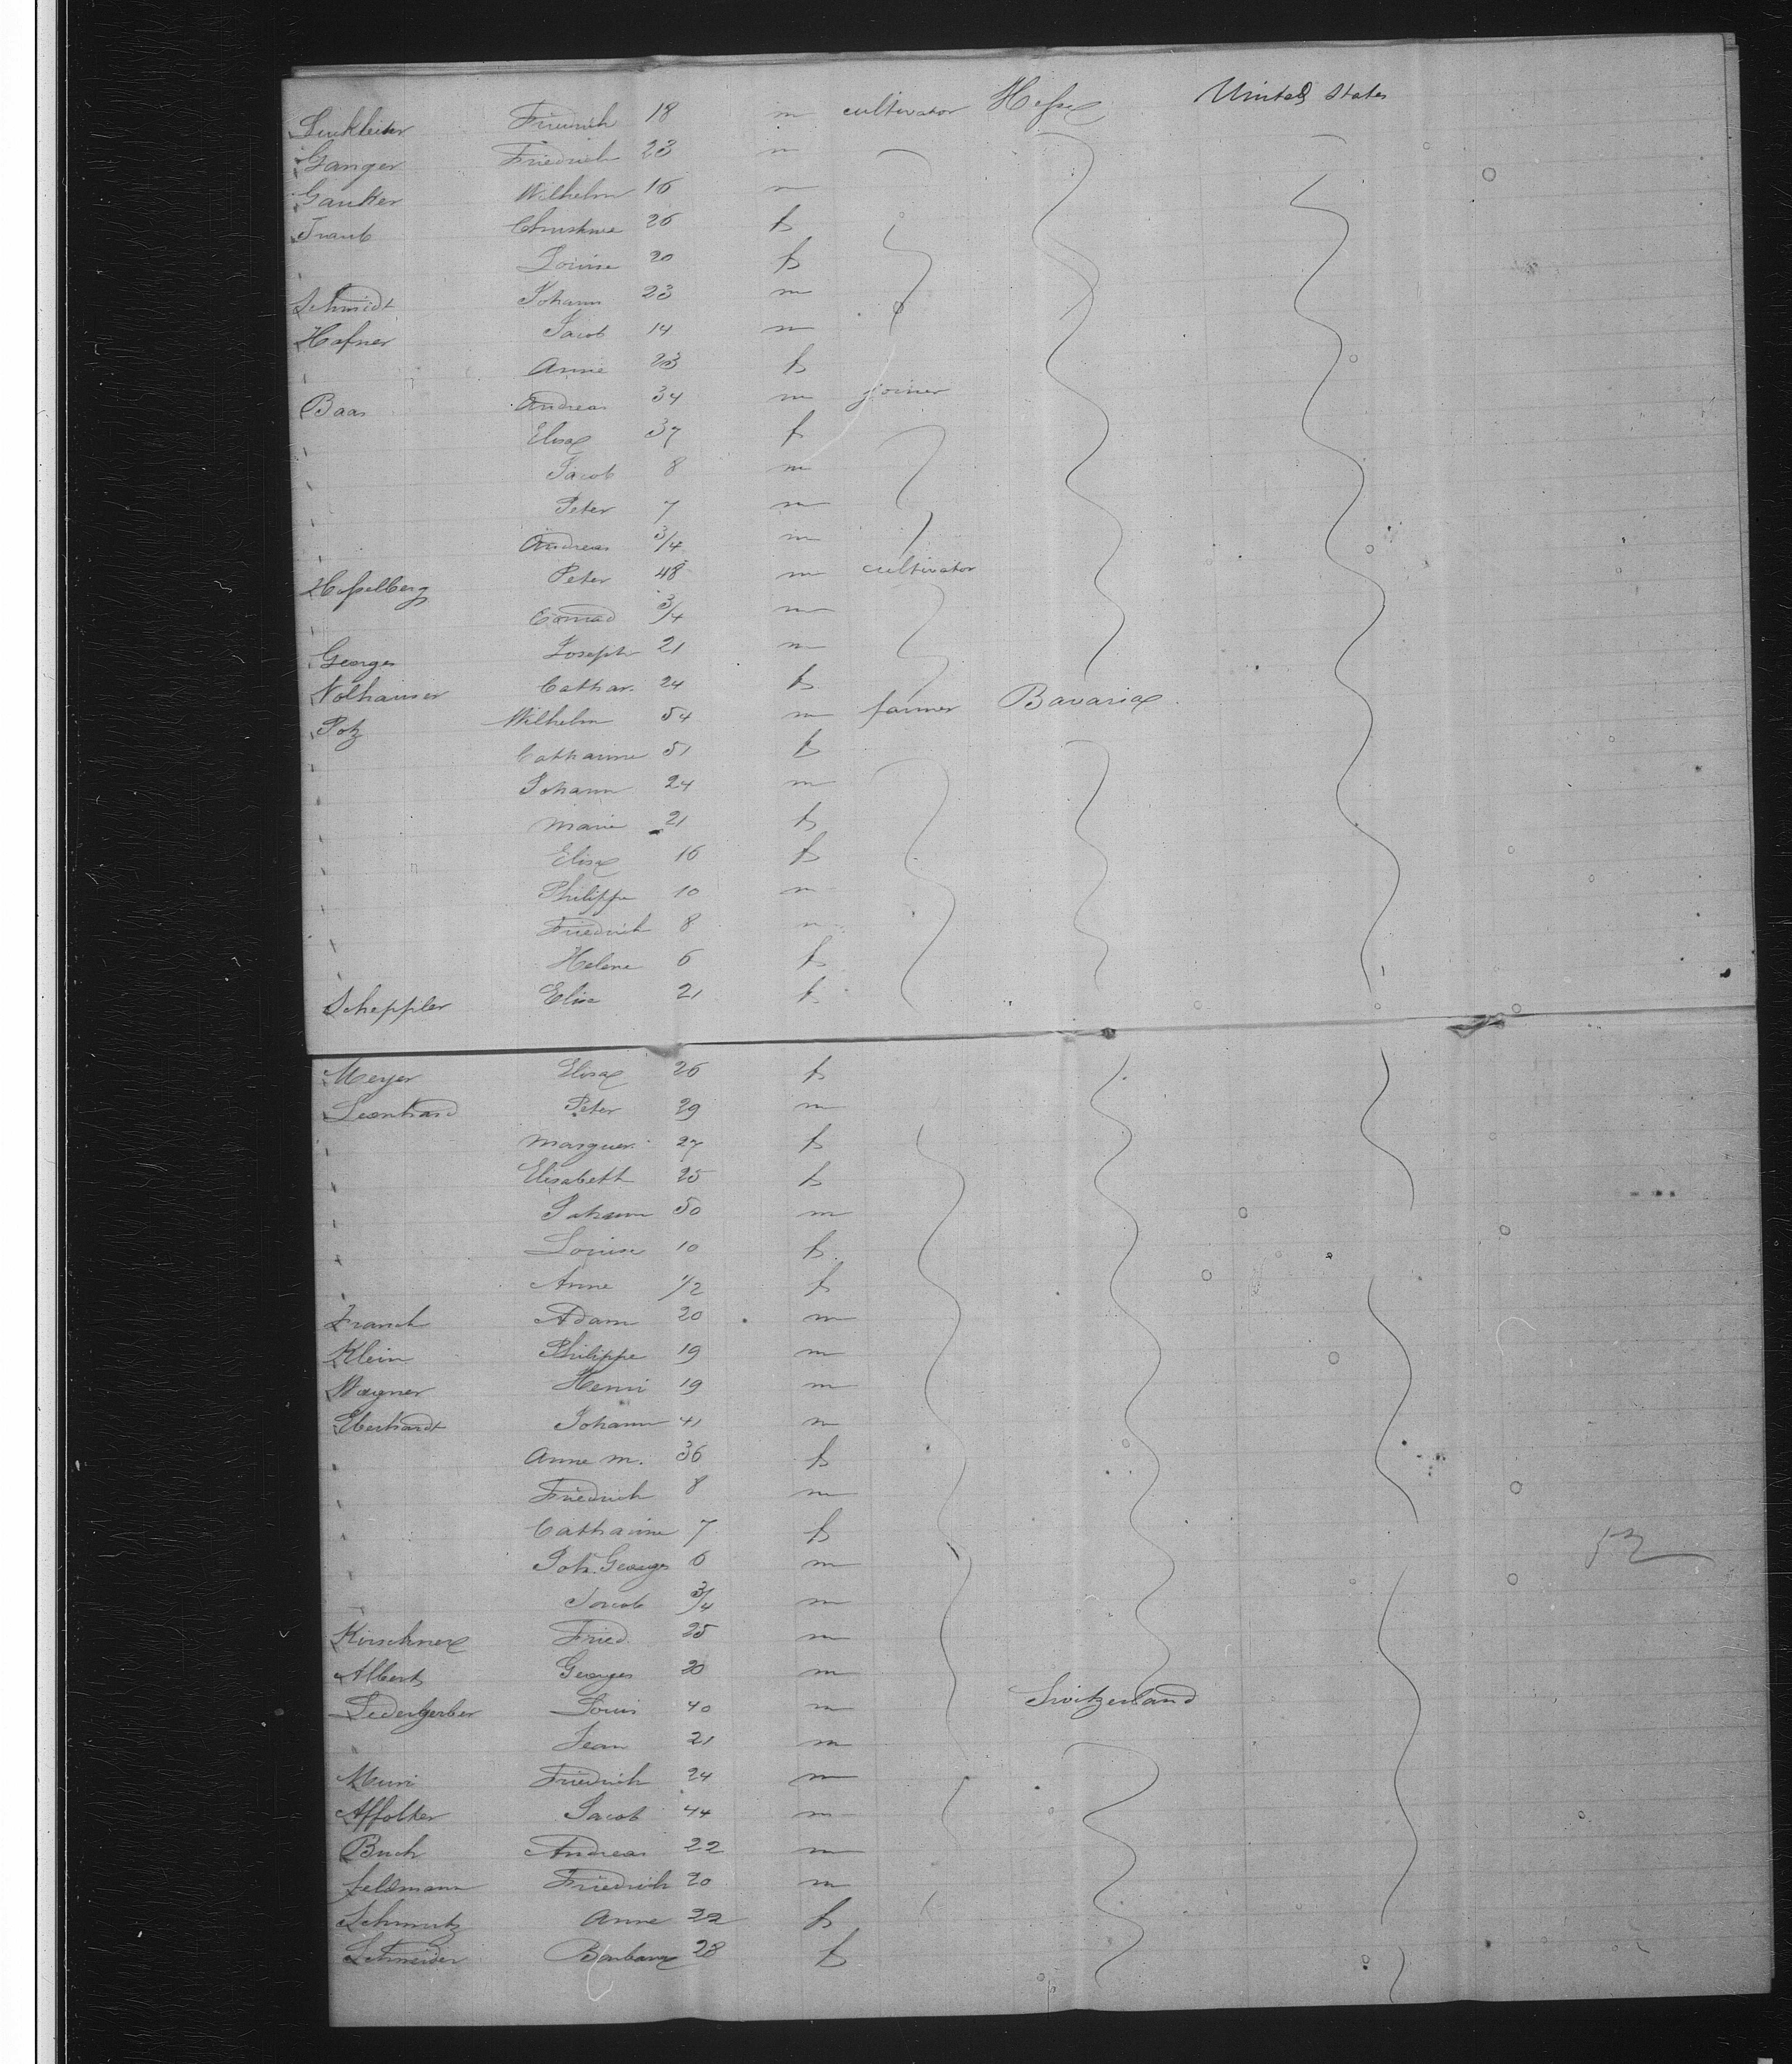 Friedrich 18 m cultivator Hesse United States
Ganger Friedrich 23 m
Gauker Wilhelm 16 m
Traub Christine 26 f
Louise 20 f
Schmidt Johann 23 m
Hafner Jacob 14 m
Anne f
Baas Andreas 34 m joiner
Elisa 37 f
Jacob 8 m
Peter 7 m
Andreas 3/4 m
Hesselberg Peter 48 m cultivator
Conrad 3/4 m
Georges Joseph 21 m
Nolhauser Cathar. 24 f
Potz Wilhelm 54 m farmer Bavaria
Catharine 51 f
Johann 24 m
Marie 21 f
Elisa 16 f
Philippe 10 m
Friedrich 8 m
Helene 6 f
Scheppler Elise 21 f
Meyer Elisa 26 f
Leonhard Peter 29 m
Marguer. 27 f
Elisabeth 25 f
Johann 50 m
Louise 10 f
Anne 1/2 f
Adam 20 m
Klein Philippe 19 m
Wagner Henri 19 m
Eberhardt Johann 41 m
Anne M. 36 f
Friedrich 8 m
Catharine 7 f
Joh. Georges 6 m
Jacob 3/4 m
Kirschner Fried. 25 m
Albert Georges 20 m
Ledergerber Louis 40 m Switzerland
Jean 21 m
Muri Friedrich 24 m
Affolter Jacob 44 m
Buch Andreas 22 m
Feldmann Friedrich 20 m
Schmutz Anne 22 f
Schneider Barbara 28 f